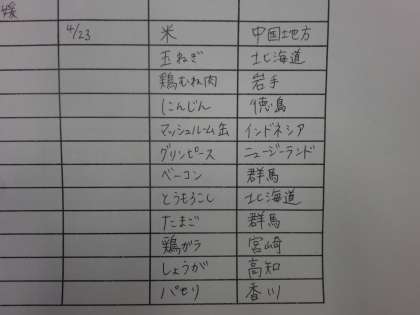 媛
4/23 米 中国地方
玉ねぎ 北海道
鶏むね肉 岩手
にんじん 徳島
マッシュルーム缶 インドネシア
グリンピース ニュージーランド
ベーコン 群馬
とうもろこし 北海道
たまご 群馬
鶏ガラ 宮崎
しょうが 高知
パセリ 香川